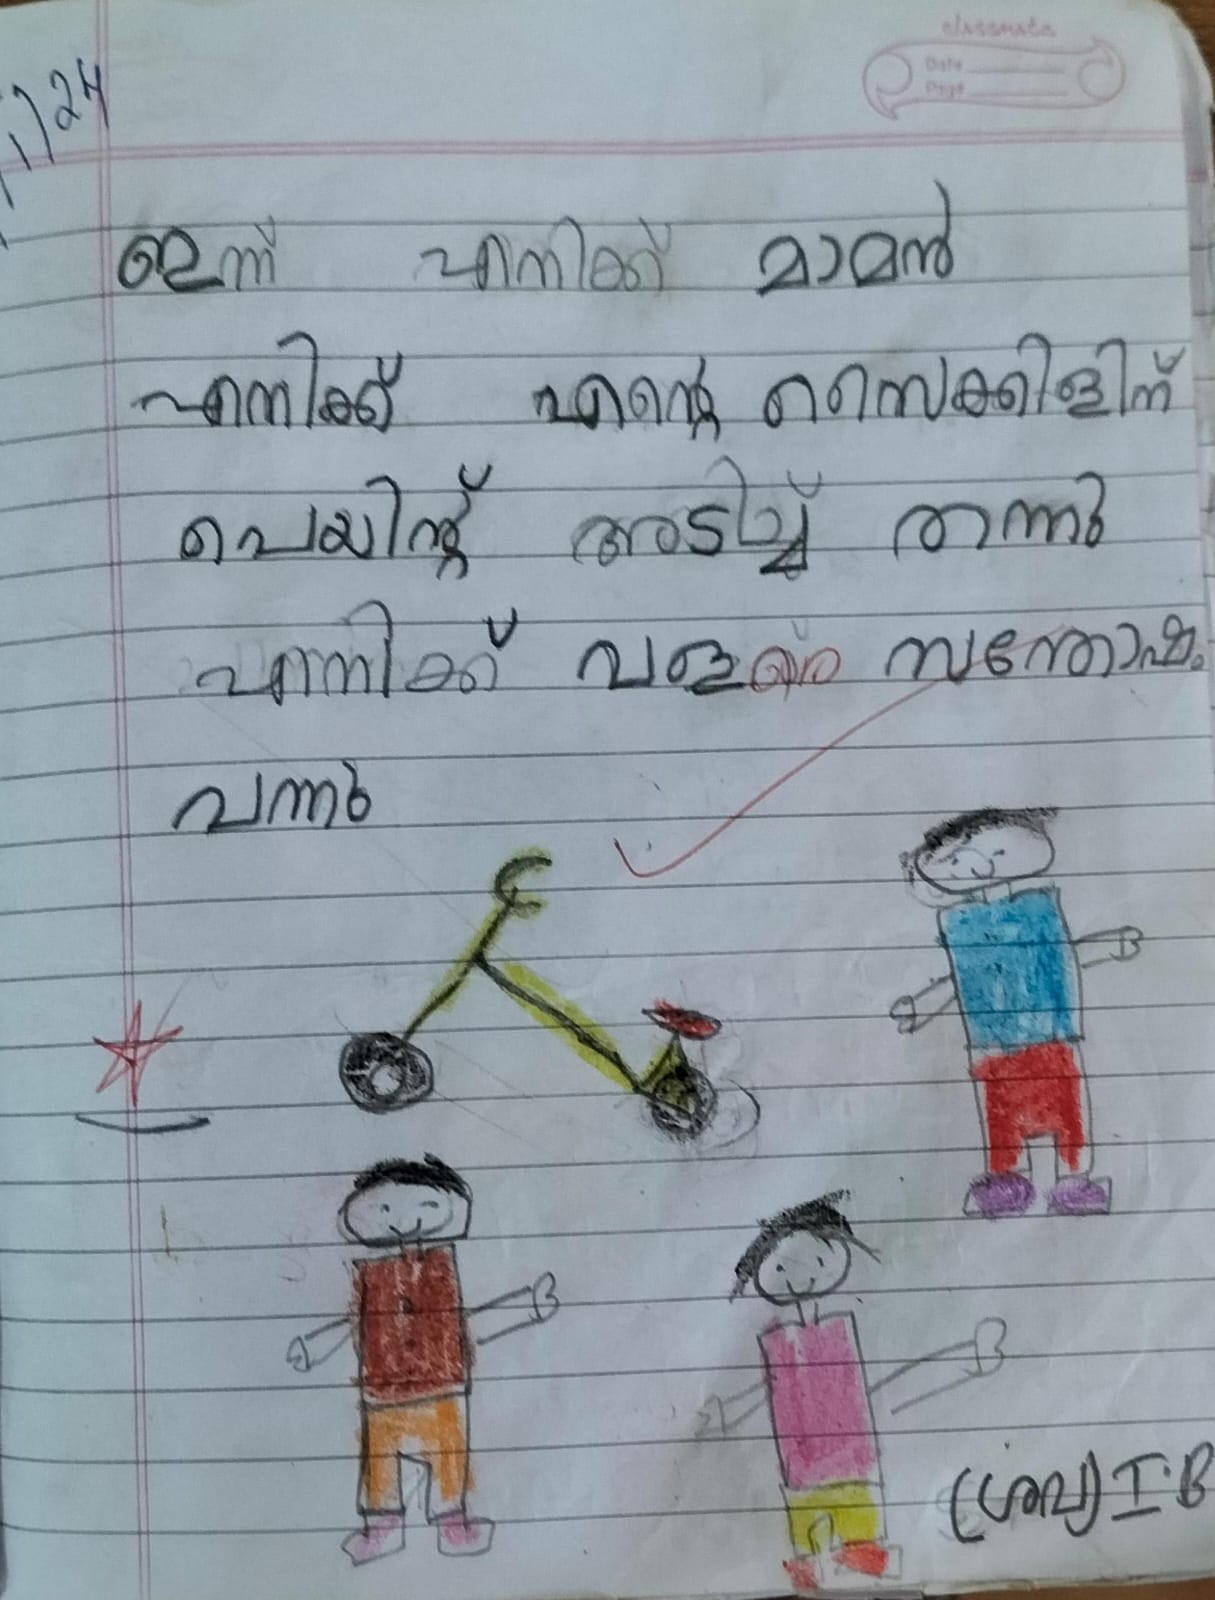 classmate
Date
Page
1/24
ഇന്ന് എനിക്ക് മാമൻ
എനിക്ക് എന്റെ സൈക്കിളിന്
പെയിന്റ് അടിച്ച് തന്നു
എനിക്ക് വളരെ സന്തോഷം
വന്നു
I.B